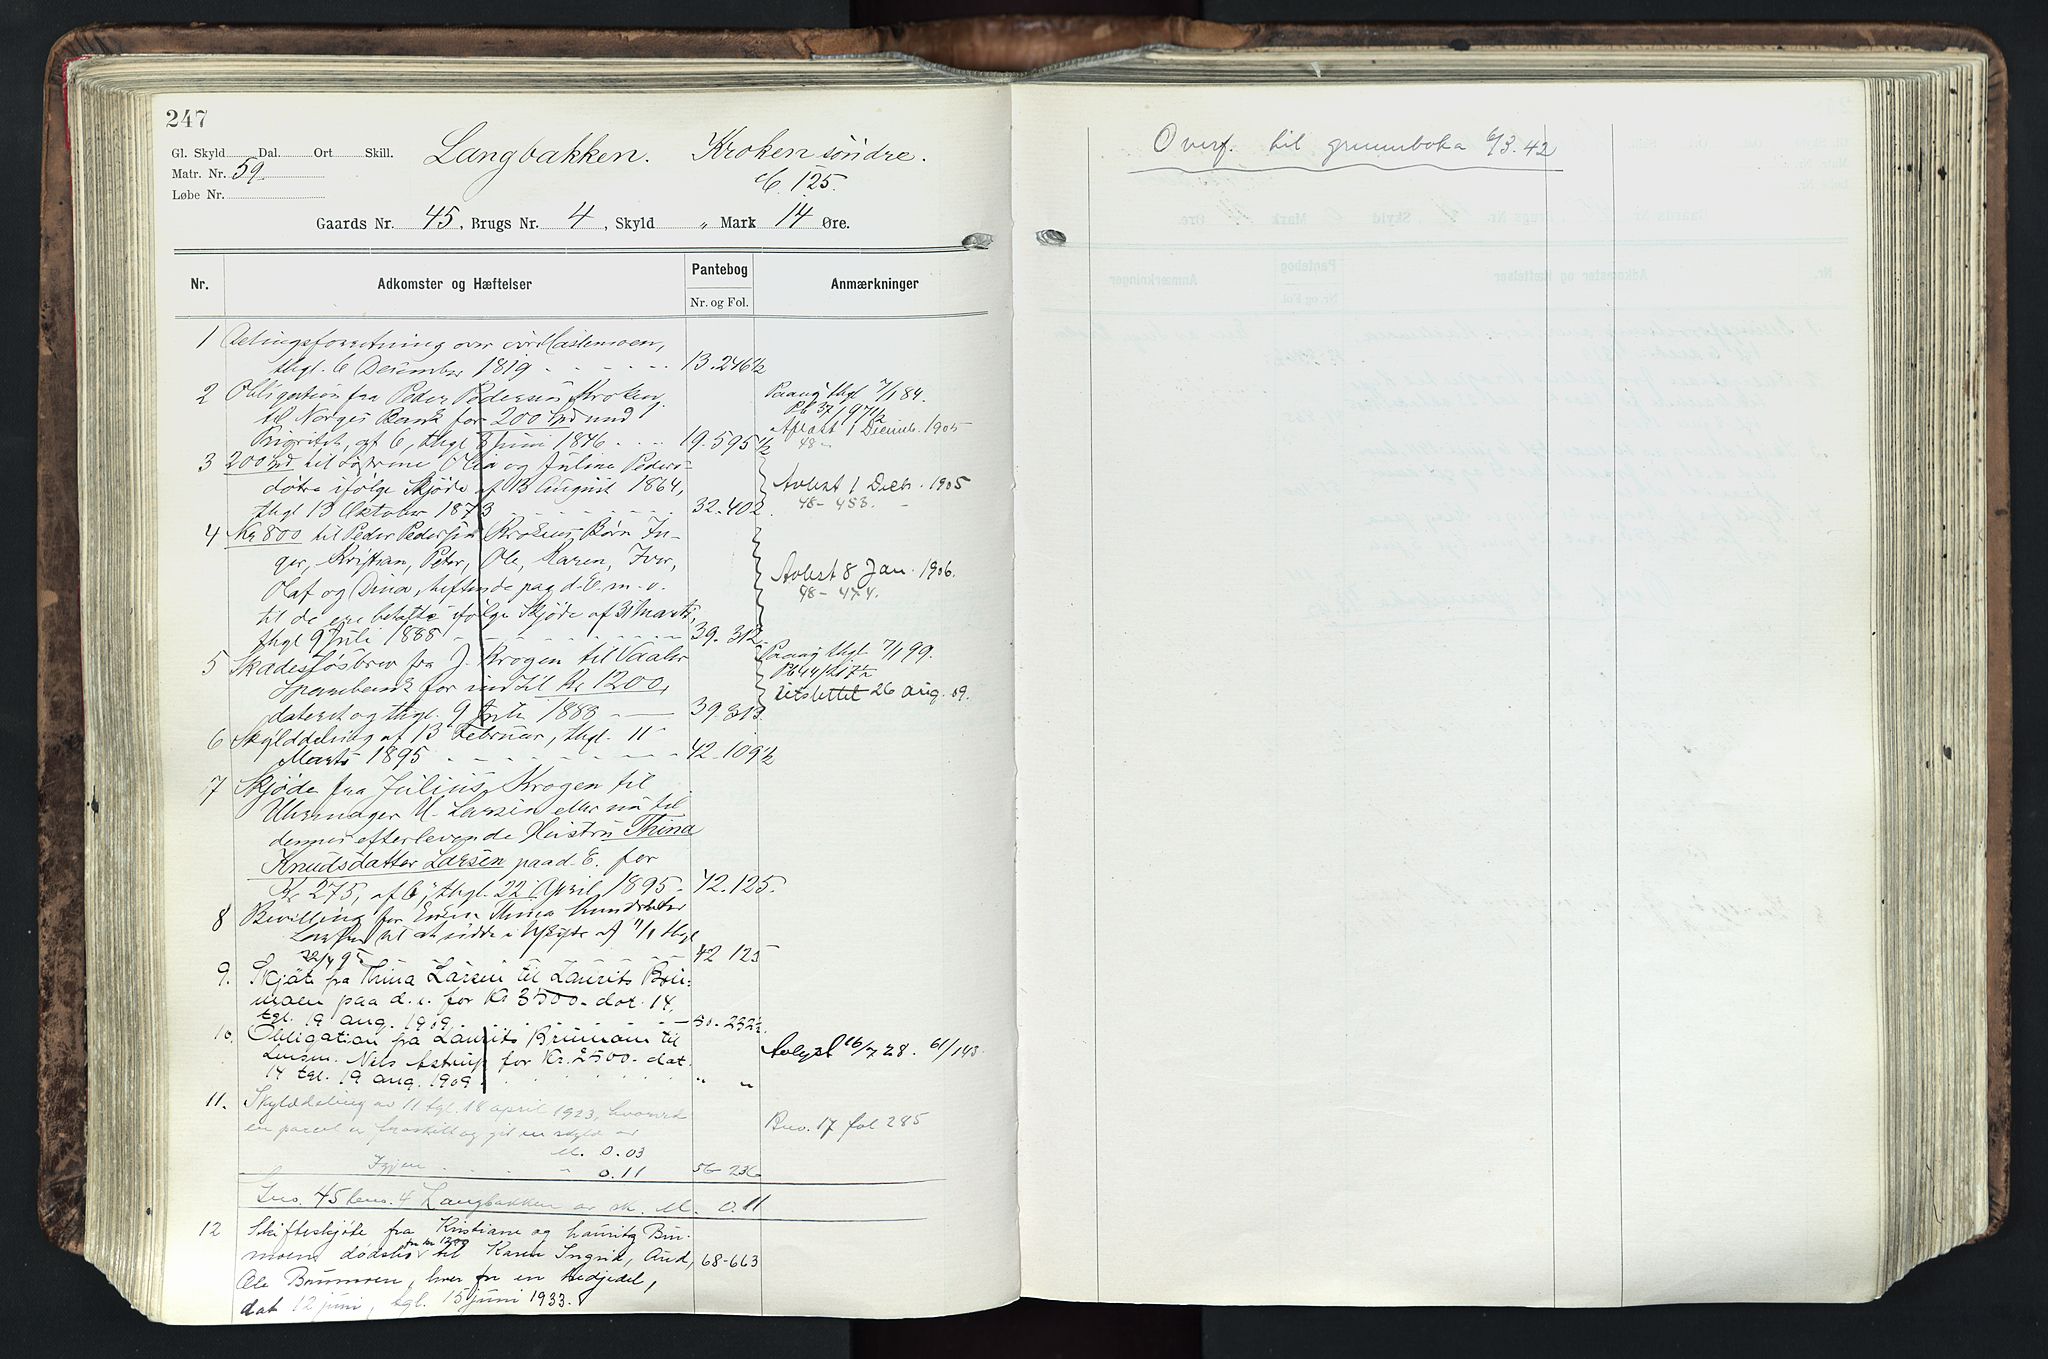 247
Gl. Skyld Dal. Ort Skill.
Matr. Nr. 59
Løbe Nr.
Langbakken. Kroken søndre.
125.
Gaards Nr. 45, Brugs Nr. 4, Skyld " Mark 14 Øre.
Nr. Adkomster og Hæftelser Pantebog Nr. og Fol. Anmærkninger
1 Delingsforretning over
thgl. 6 December 1819 13.246½
2 Obligation fra Peder Pedersen Kroken
til Norges Bank for 200 Spd under 1
Prioritet, af 6, thgl 8 Juni 1846 19.595½
Paaag thgl 7/1 84.
Pb 37/197½
Aflæst 1 Decemb. 1905
48-
3 200 Spd til Søstrene Olia og Juline Peders-
døtre ifølge Skjøde af 13 August 1864,
thgl 13 Oktober 1873 32.402.
Avlest 1 Decb. 1905
48-453.
4 Kr 800 til Peder Pedersen Krokens Børn In-
ger, Kristian, Peter, Ole, Karen, Iver,
Olaf og Dina, heftende paa d. E. m. v.
til de ere betalte ifølge Skjøde af 31 Marts,
thgl 9 Juli 1888 39.312
Avlest 8 Jan. 1906.
48-474.
5 Skadesløsbrev fra J. Krogen til Vaaler
Sparebank for indtil Kr 1200,
dateret og thgl. 9 Juli 1888 39.313.
Paaag thgl 7/1 99.
Pb 44/217½
Utslettet 26 aug. 09.
6 Skylddeling af 13 Februar, thgl. 11
Marts 1895 42.109½
7 Skjøde fra Julius Krogen til
Uhrmager H. Larsen eller nu til
dennes efterlevende Hustru Thina
Knudsdatter Larsen paa d. E. for
Kr 275, af 6, thgl. 22 April 1895. 42.125.
8 Bevilling for Enken Thina Knudsdatter
Larsen til at sidde i Uskifte af thgl
22/4 95 42 125
9. Skjøte fra Thina Larsen til Laurits Brun-
moen paa d. e. for Kr 3500.- dat. 14,
tgl. 19 aug. 1909. 50-232½.
10. Obligation fra Laurits Brunmoen til
Lensm. Nils Astrup for Kr. 2500.- dat.
14 tgl. 19 aug. 1909. " "
Avlyst 26/7 28. 61/143.
11. Skylddeling av 11 tgl. 18 april 1923, hvorved
en parcel er fraskilt og git en skyld av
M. 0.03
Igjen " 0.11 56-236
Bno. 17 fol 285
Gno. 45 bno. 4 Langbakken av sk. M. 0.11
12 Skifteskjøte fra Kristiane og Laurits Brun-
moens dødsbo for kr 1200 til Karen Ingrid, Aud, 68-663
Ole Brunmoen, hver for en tredjedel,
dat 12 juni, tgl. 15 juni 1933.
Overf. til grunnboka 6/3.42